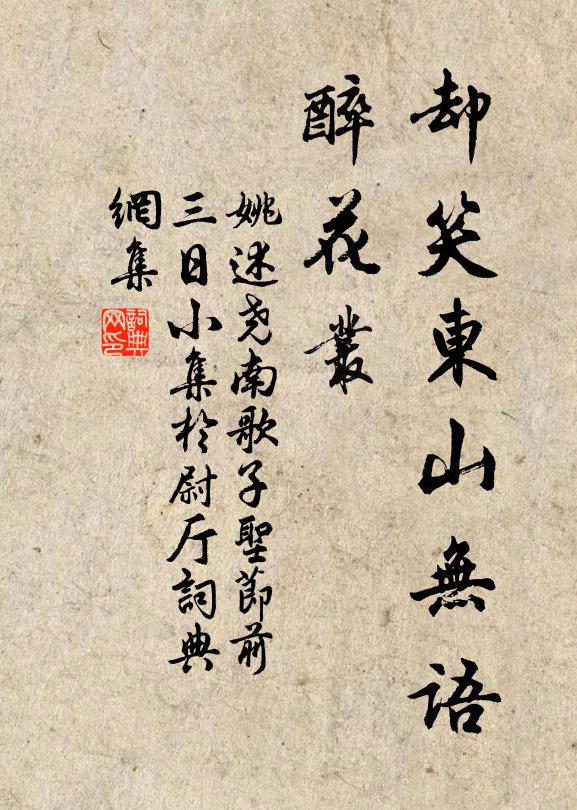 却笑東山無語
醉花叢
姚述尧南歌子聖節前
三日小集於尉厅詞典
網集
詞典
网印